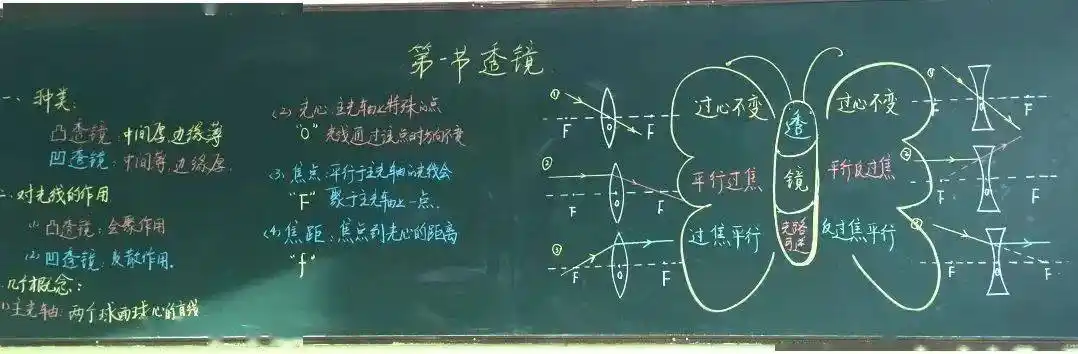 第一节 透镜
一、种类:
凸透镜:中间厚边缘薄
凹透镜:中间薄,边缘厚.
二、对光线的作用
(1) 凸透镜:会聚作用
(2) 凹透镜:发散作用.
几个概念:
(1)主光轴:两个球面球心的直线
(2)光心:主光轴上特殊的点
"O" 光线通过该点时方向不变
(3)焦点:平行于主光轴的光线会
"F" 聚于主光轴上一点.
(4)焦距:焦点到光心的距离
"f"
① F O F
② F O F
③ F O F
过心不变
平行过焦
过焦平行
透
镜
光路
可逆
过心不变
平行反过焦
反过焦平行
① F O F
② F O F
F O F